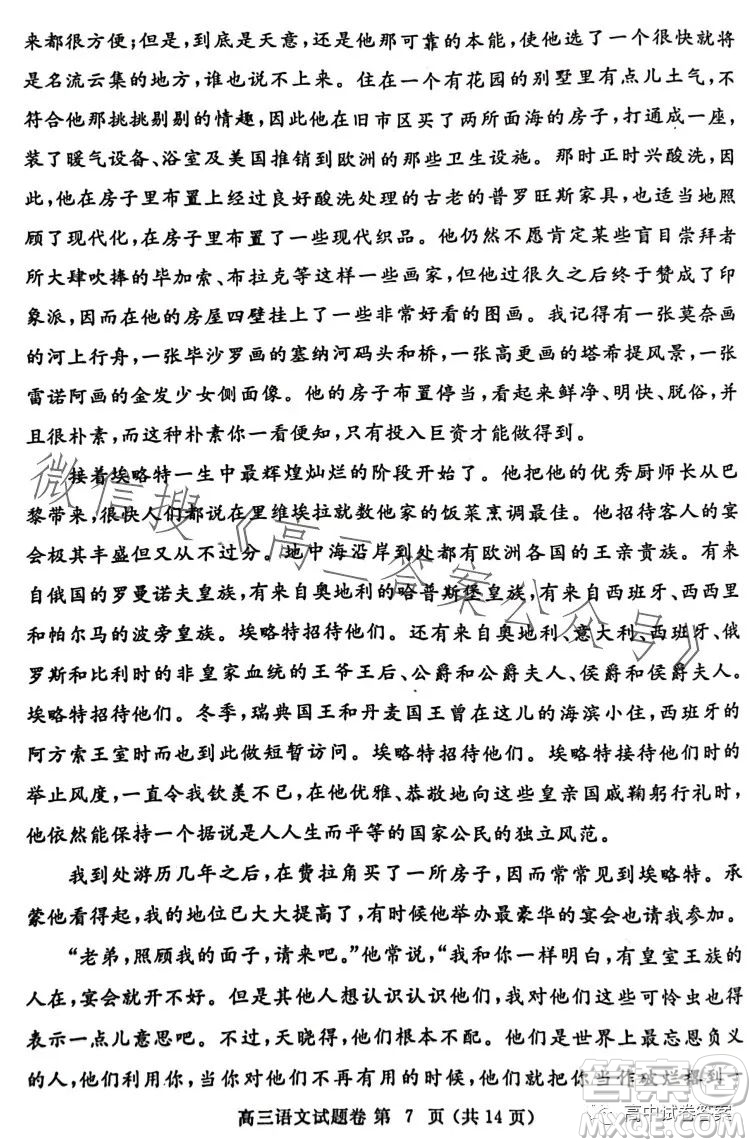 来都很方便；但是，到底是天意，还是他那可靠的本能，使他选了一个很快就将
是名流云集的地方，谁也说不上来。住在一个有花园的别墅里有点儿土气，不
符合他那挑挑剔剔的情趣，因此他在旧市区买了两所面海的房子，打通成一座，
装了暖气设备、浴室及美国推销到欧洲的那些卫生设施。那时正时兴酸洗，因
此，他在房子里布置上经过良好酸洗处理的古老的普罗旺斯家具，也适当地照
顾了现代化，在房子里布置了一些现代织品。他仍然不愿肯定某些盲目崇拜者
所大肆吹捧的毕加索、布拉克等这样一些画家，但他过很久之后终于赞成了印
象派，因而在他的房屋四壁挂上了一些非常好看的图画。我记得有一张莫奈画
的河上行舟，一张毕沙罗画的塞纳河码头和桥，一张高更画的塔希提风景，一张
雷诺阿画的金发少女侧面像。他的房子布置停当，看起来鲜净、明快、脱俗，并
且很朴素，而这种朴素你一看便知，只有投入巨资才能做得到。
接着埃略特一生中最辉煌灿烂的阶段开始了。他把他的优秀厨师长从巴
黎带来，很快人们都说在里维埃拉就数他家的饭菜烹调最佳。他招待客人的宴
会极其丰盛但又从不过分。地中海沿岸到处都有欧洲各国的王亲贵族。有来
自俄国的罗曼诺夫皇族，有来自奥地利的哈普斯堡皇族，有来自西班牙、西西里
和帕尔马的波旁皇族。埃略特招待他们。还有来自奥地利、意大利、西班牙、俄
罗斯和比利时的非皇家血统的王爷王后、公爵和公爵夫人、侯爵和侯爵夫人。
埃略特招待他们。冬季，瑞典国王和丹麦国王曾在这儿的海滨小住，西班牙的
阿方索王室时而也会做短暂访问。埃略特招待他们。埃略特接待他们时的
举止风度，一直令我钦羡不已，在他优雅、恭敬地向这些皇亲国戚鞠躬行礼时，
他依然能保持一个据说是人人生而平等的国家公民的独立风范。
我到处游历几年之后，在费拉角买了一所房子，因而常常见到埃略特。承
蒙他看得起，我的地位已大大提高了，有时候他举办最豪华的宴会也请我参加。
“老弟，照顾我的面子，请来吧。”他常说，“我和你一样明白，有皇室王族的
人在，宴会就开不好。但是其他人想认识认识他们，我对他们这些可怜虫也得
表示一点儿意思吧。不过，天晓得，他们根本不配。他们是世界上最忘恩负义
的人，他们利用你，当他们不再有用的时候，他们就把你当作破烂摆到一
高三语文试题卷 第 7 页（共14页）
微信搜《高三答案公众号》
答案圈
MXQE.COM
高中试卷答案